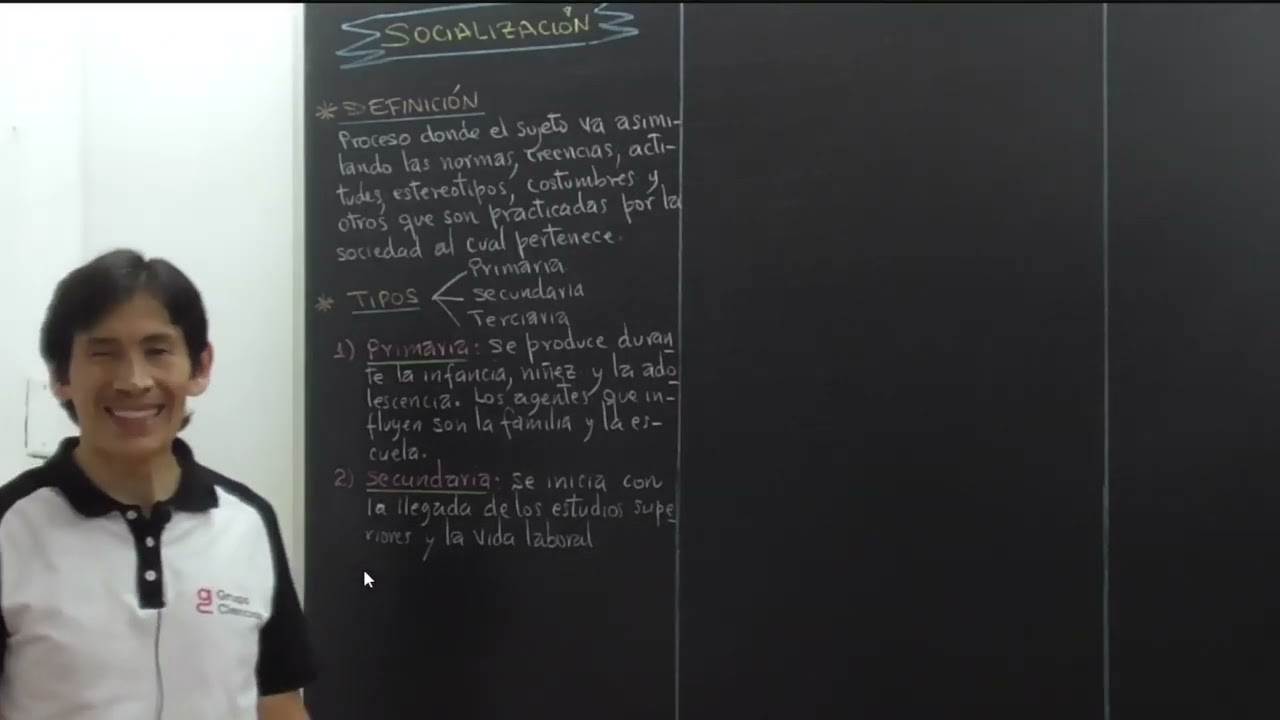 SOCIALIZACIÓN
* DEFINICIÓN
Proceso donde el sujeto va asimi-
lando las normas, creencias, acti-
tudes, estereotipos, costumbres y
otros que son practicadas por la
sociedad al cual pertenece.
Primaria
* TIPOS secundaria
Terciaria
1) Primaria: se produce duran
te la infancia, niñez y la ado
lescencia. Los agentes que in-
fluyen son la familia y la es-
cuela.
2) Secundaria: se inicia con
la llegada de los estudios supe
riores y la vida laboral
Grupo